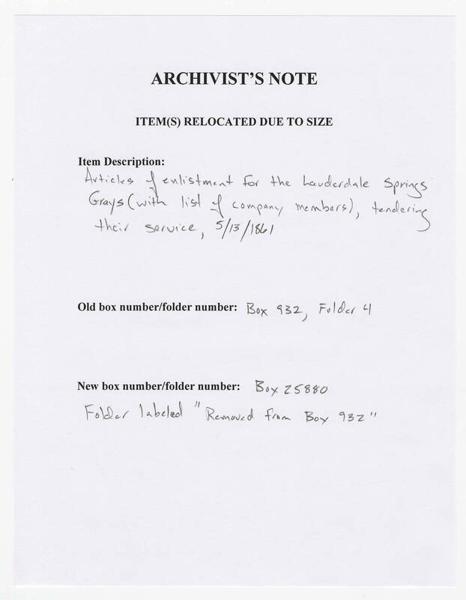 ARCHIVIST'S NOTE
ITEM(S) RELOCATED DUE TO SIZE
Item Description:
Articles of enlistment for the Lauderdale Springs
Grays (with list of company members), tendering
their service, 5/13/1861
Old box number/folder number: Box 932, Folder 4
New box number/folder number: Box 25880
Folder labeled "Removed from Box 932"